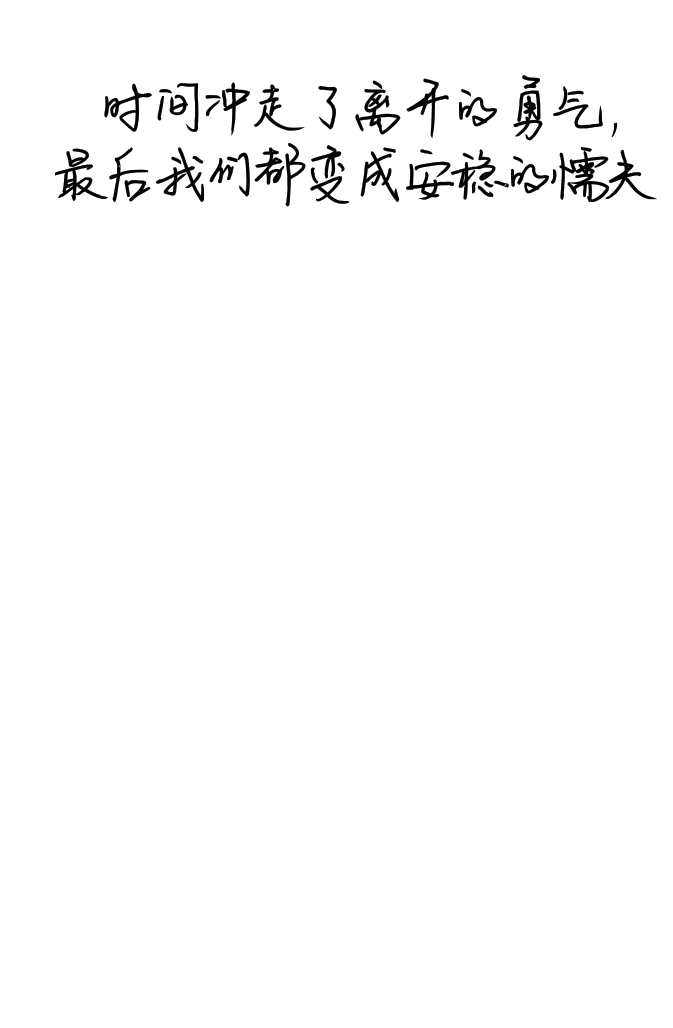 时间冲走了离开的勇气,
最后我们都变成安稳的懦夫